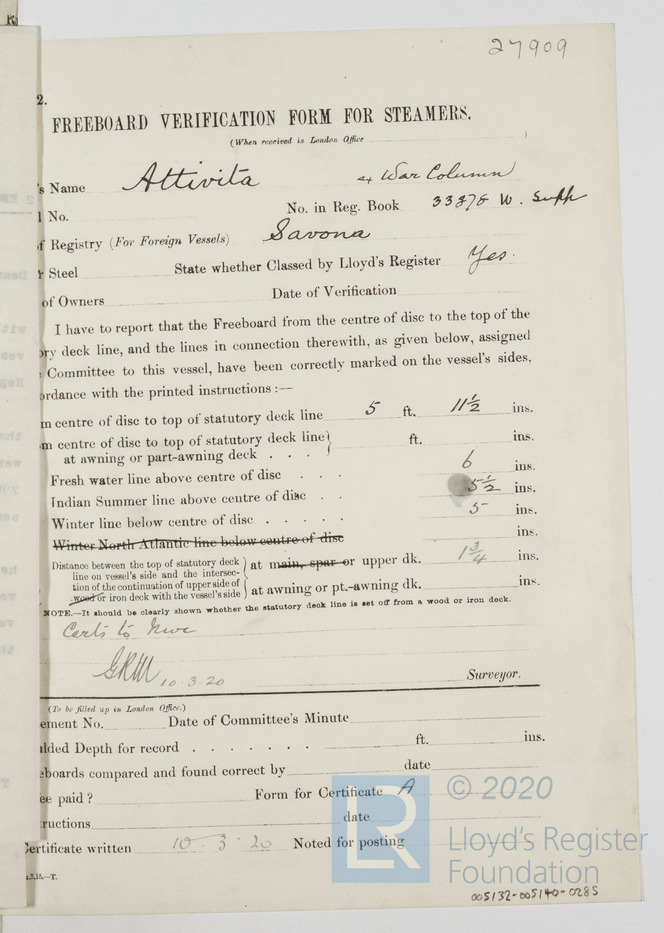 27909
2.
FREEBOARD VERIFICATION FORM FOR STEAMERS.
(When received in London Office )
's Name Attivita ex War Column
l No. No. in Reg. Book 33378 W. Supp
of Registry (For Foreign Vessels) Savona
r Steel State whether Classed by Lloyd's Register Yes.
of Owners Date of Verification
I have to report that the Freeboard from the centre of disc to the top of the
ory deck line, and the lines in connection therewith, as given below, assigned
Committee to this vessel, have been correctly marked on the vessel's sides,
ordance with the printed instructions :—
m centre of disc to top of statutory deck line 5 ft. 11½ ins.
m centre of disc to top of statutory deck line
at awning or part-awning deck . . . ft. ins.
Fresh water line above centre of disc . . . 6 ins.
Indian Summer line above centre of disc . . 5½ ins.
Winter line below centre of disc . . . . . 5 ins.
Winter North Atlantic line below centre of disc ins.
Distance between the top of statutory deck
line on vessel's side and the intersec-
tion of the continuation of upper side of
wood or iron deck with the vessel's side
at main, spar or upper dk. 1¾ ins.
at awning or pt.-awning dk. ins.
NOTE.—It should be clearly shown whether the statutory deck line is set off from a wood or iron deck.
Certs to Nwc
GRM 10.3.20 Surveyor.
(To be filled up in London Office.)
ement No. Date of Committee's Minute
ulded Depth for record . . . . . . . ft. ins.
eboards compared and found correct by date
ee paid ? Form for Certificate A
ructions date
Certificate written 10.3.20 Noted for posting
LR
© 2020
Lloyd's Register
Foundation
005132-005140-0285